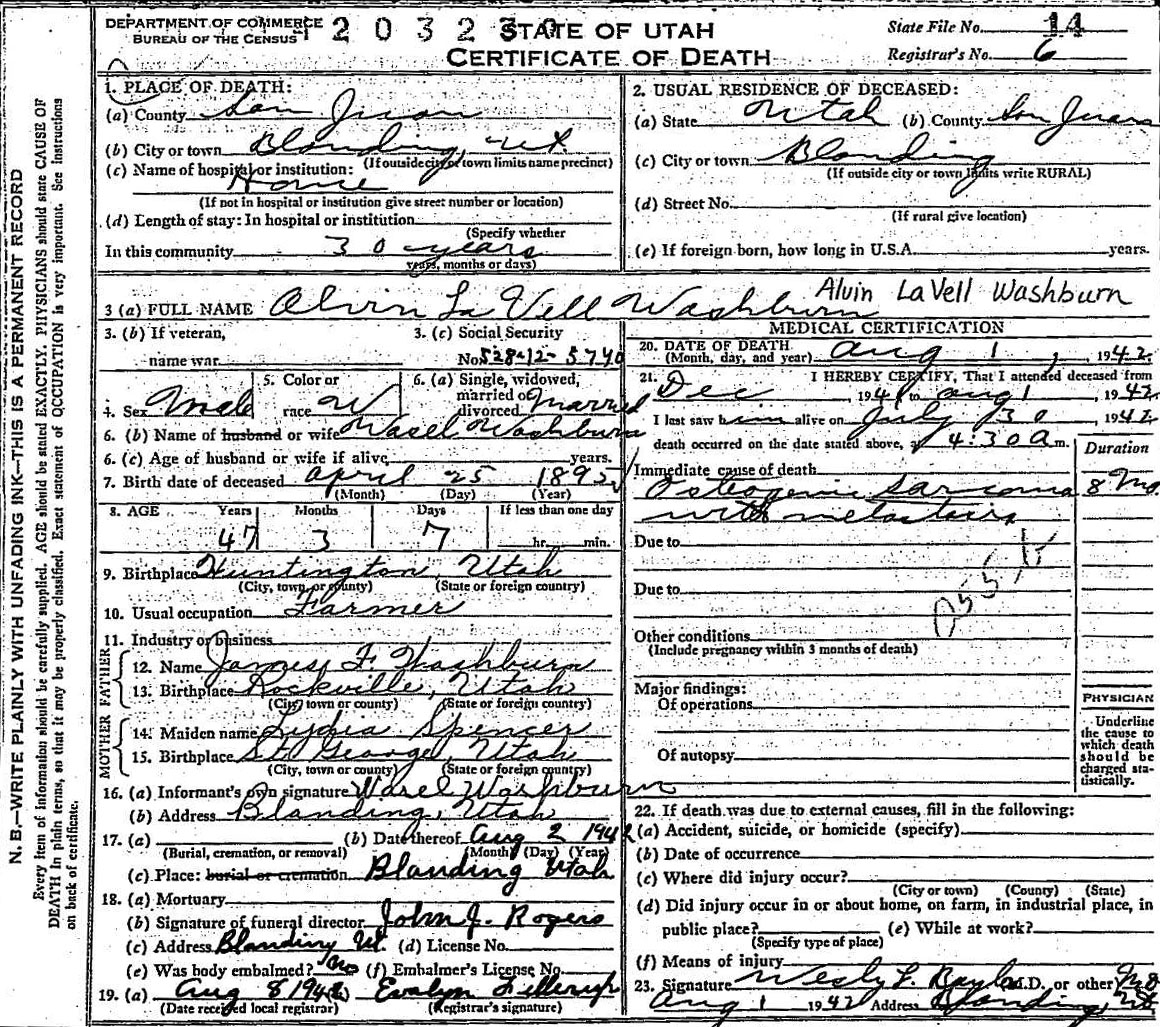 DEPARTMENT OF COMMERCE
BUREAU OF THE CENSUS
2 0 3 2 3 0
STATE OF UTAH
CERTIFICATE OF DEATH
State File No. 14
Registrar's No. 6
N. B.—WRITE PLAINLY WITH UNFADING INK—THIS IS A PERMANENT RECORD
Every item of information should be carefully supplied. AGE should be stated EXACTLY. PHYSICIANS should state CAUSE OF
DEATH in plain terms, so that it may be properly classified. Exact statement of OCCUPATION is very important. See instructions
on back of certificate.
1. PLACE OF DEATH:
(a) County San Juan
(b) City or town Blanding, Ut
(If outside city or town limits name precinct)
(c) Name of hospital or institution:
Home
(If not in hospital or institution give street number or location)
(d) Length of stay: In hospital or institution
(Specify whether
In this community 30 years
years, months or days)
2. USUAL RESIDENCE OF DECEASED:
(a) State Utah (b) County San Juan
(c) City or town Blanding
(If outside city or town limits write RURAL)
(d) Street No.
(If rural give location)
(e) If foreign born, how long in U.S.A. years.
3 (a) FULL NAME Alvin La Vell Washburn Alvin LaVell Washburn
3. (b) If veteran,
name war
3. (c) Social Security
No. 528-12-5740
4. Sex Male
5. Color or
race W
6. (a) Single, widowed,
married or
divorced Married
6. (b) Name of husband or wife Wasel Washburn
6. (c) Age of husband or wife if alive years.
7. Birth date of deceased April 25 1895
(Month) (Day) (Year)
8. AGE Years Months Days If less than one day
47 3 7 hr. min.
9. Birthplace Huntington, Utah
(City, town or county) (State or foreign country)
10. Usual occupation Farmer
11. Industry or business
FATHER
12. Name James F. Washburn
13. Birthplace Rockville, Utah
(City, town or county) (State or foreign country)
MOTHER
14. Maiden name Lydia Spencer
15. Birthplace St George, Utah
(City, town or county) (State or foreign country)
16. (a) Informant's own signature Wasel Washburn
(b) Address Blanding, Utah
17. (a) (b) Date thereof Aug 2 1942
(Burial, cremation, or removal) (Month) (Day) (Year)
(c) Place: burial or cremation Blanding Utah
18. (a) Mortuary
(b) Signature of funeral director John J. Rogers
(c) Address Blanding Ut. (d) License No.
(e) Was body embalmed? No (f) Embalmer's License No.
19. (a) Aug 8 1942 Evalyn Fillerup
(Date received local registrar) (Registrar's signature)
MEDICAL CERTIFICATION
20. DATE OF DEATH
(Month, day, and year) Aug 1, 1942.
21. I HEREBY CERTIFY, That I attended deceased from
Dec, 1941 to Aug 1, 1942
I last saw him alive on July 30 1942
death occurred on the date stated above, at 4:30 a m.
Duration
Immediate cause of death
Osteogenic sarcoma 8 Mo.
with metastasis
Due to
Due to
Other conditions
(Include pregnancy within 3 months of death)
Major findings:
Of operations
Of autopsy
PHYSICIAN
Underline
the cause to
which death
should be
charged sta-
tistically.
22. If death was due to external causes, fill in the following:
(a) Accident, suicide, or homicide (specify)
(b) Date of occurrence
(c) Where did injury occur?
(City or town) (County) (State)
(d) Did injury occur in or about home, on farm, in industrial place, in
public place? (e) While at work?
(Specify type of place)
(f) Means of injury
23. Signature Wesly L. M.D. or other MD
Aug 1 1942 Address Blanding, Ut.